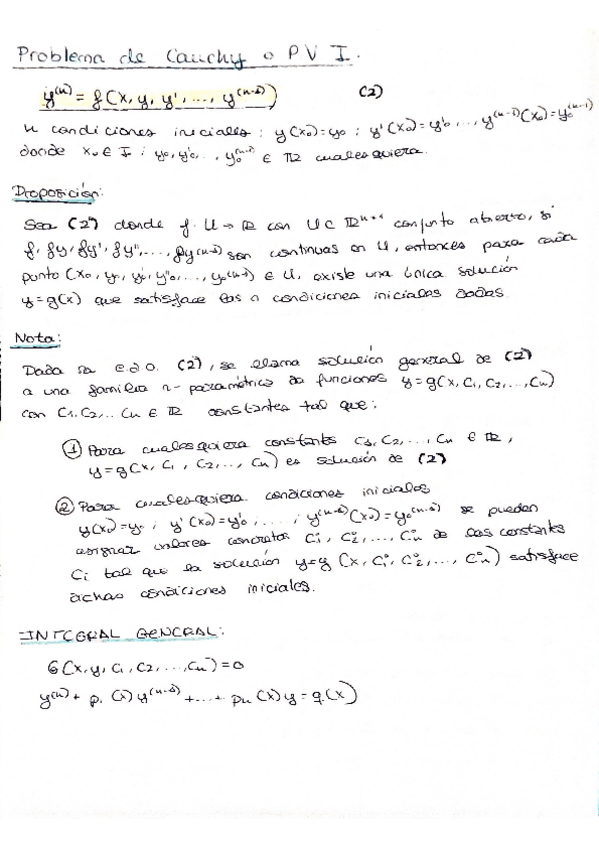 Problema de Cauchy o PVI.
y⁽ⁿ⁾ = f(x, y, y', ..., y⁽ⁿ⁻¹⁾) (2)
n condiciones iniciales: y(x₀)=y₀ ; y'(x₀)=y'₀, ..., y⁽ⁿ⁻¹⁾(x₀)=y₀⁽ⁿ⁻¹⁾
donde x₀ ∈ I ; y₀, y'₀, .., y₀⁽ⁿ⁻¹⁾ ∈ ℝ cualesquiera.
Proposición:
Sea (2) donde f: U → ℝ con U ⊂ ℝⁿ⁺¹ conjunto abierto, si
f, fy, fy', fy'', ..., fy⁽ⁿ⁻¹⁾ son continuas en U, entonces para cada
punto (x₀, y₀, y'₀, y''₀, ..., y₀⁽ⁿ⁻¹⁾) ∈ U, existe una única solución
y=g(x) que satisface las n condiciones iniciales dadas.
Nota:
Dada la e.d.o. (2), se llama solución general de (2)
a una familia n-paramétrica de funciones y=g(x, C₁, C₂, ..., Cn)
con C₁, C₂, .. Cn ∈ ℝ constantes tal que:
① Para cualesquiera constantes C₁, C₂, ..., Cn ∈ ℝ,
y=g(x, C₁, C₂, ..., Cn) es solución de (2)
② Para cualesquiera condiciones iniciales
y(x₀)=y₀ ; y'(x₀)=y'₀, ... ; y⁽ⁿ⁻¹⁾(x₀)=y₀⁽ⁿ⁻¹⁾ se pueden
asignar valores concretos C₁°, C₂°, ..., Cn° de las constantes
Ci tal que la solución y=g(x, C₁°, C₂°, ..., Cn°) satisface
dichas condiciones iniciales.
=INTEGRAL GENERAL:
G(x, y, C₁, C₂, ..., Cn)=0
y⁽ⁿ⁾ + p₁(x)y⁽ⁿ⁻¹⁾ + ... + pn(x)y = q(x)